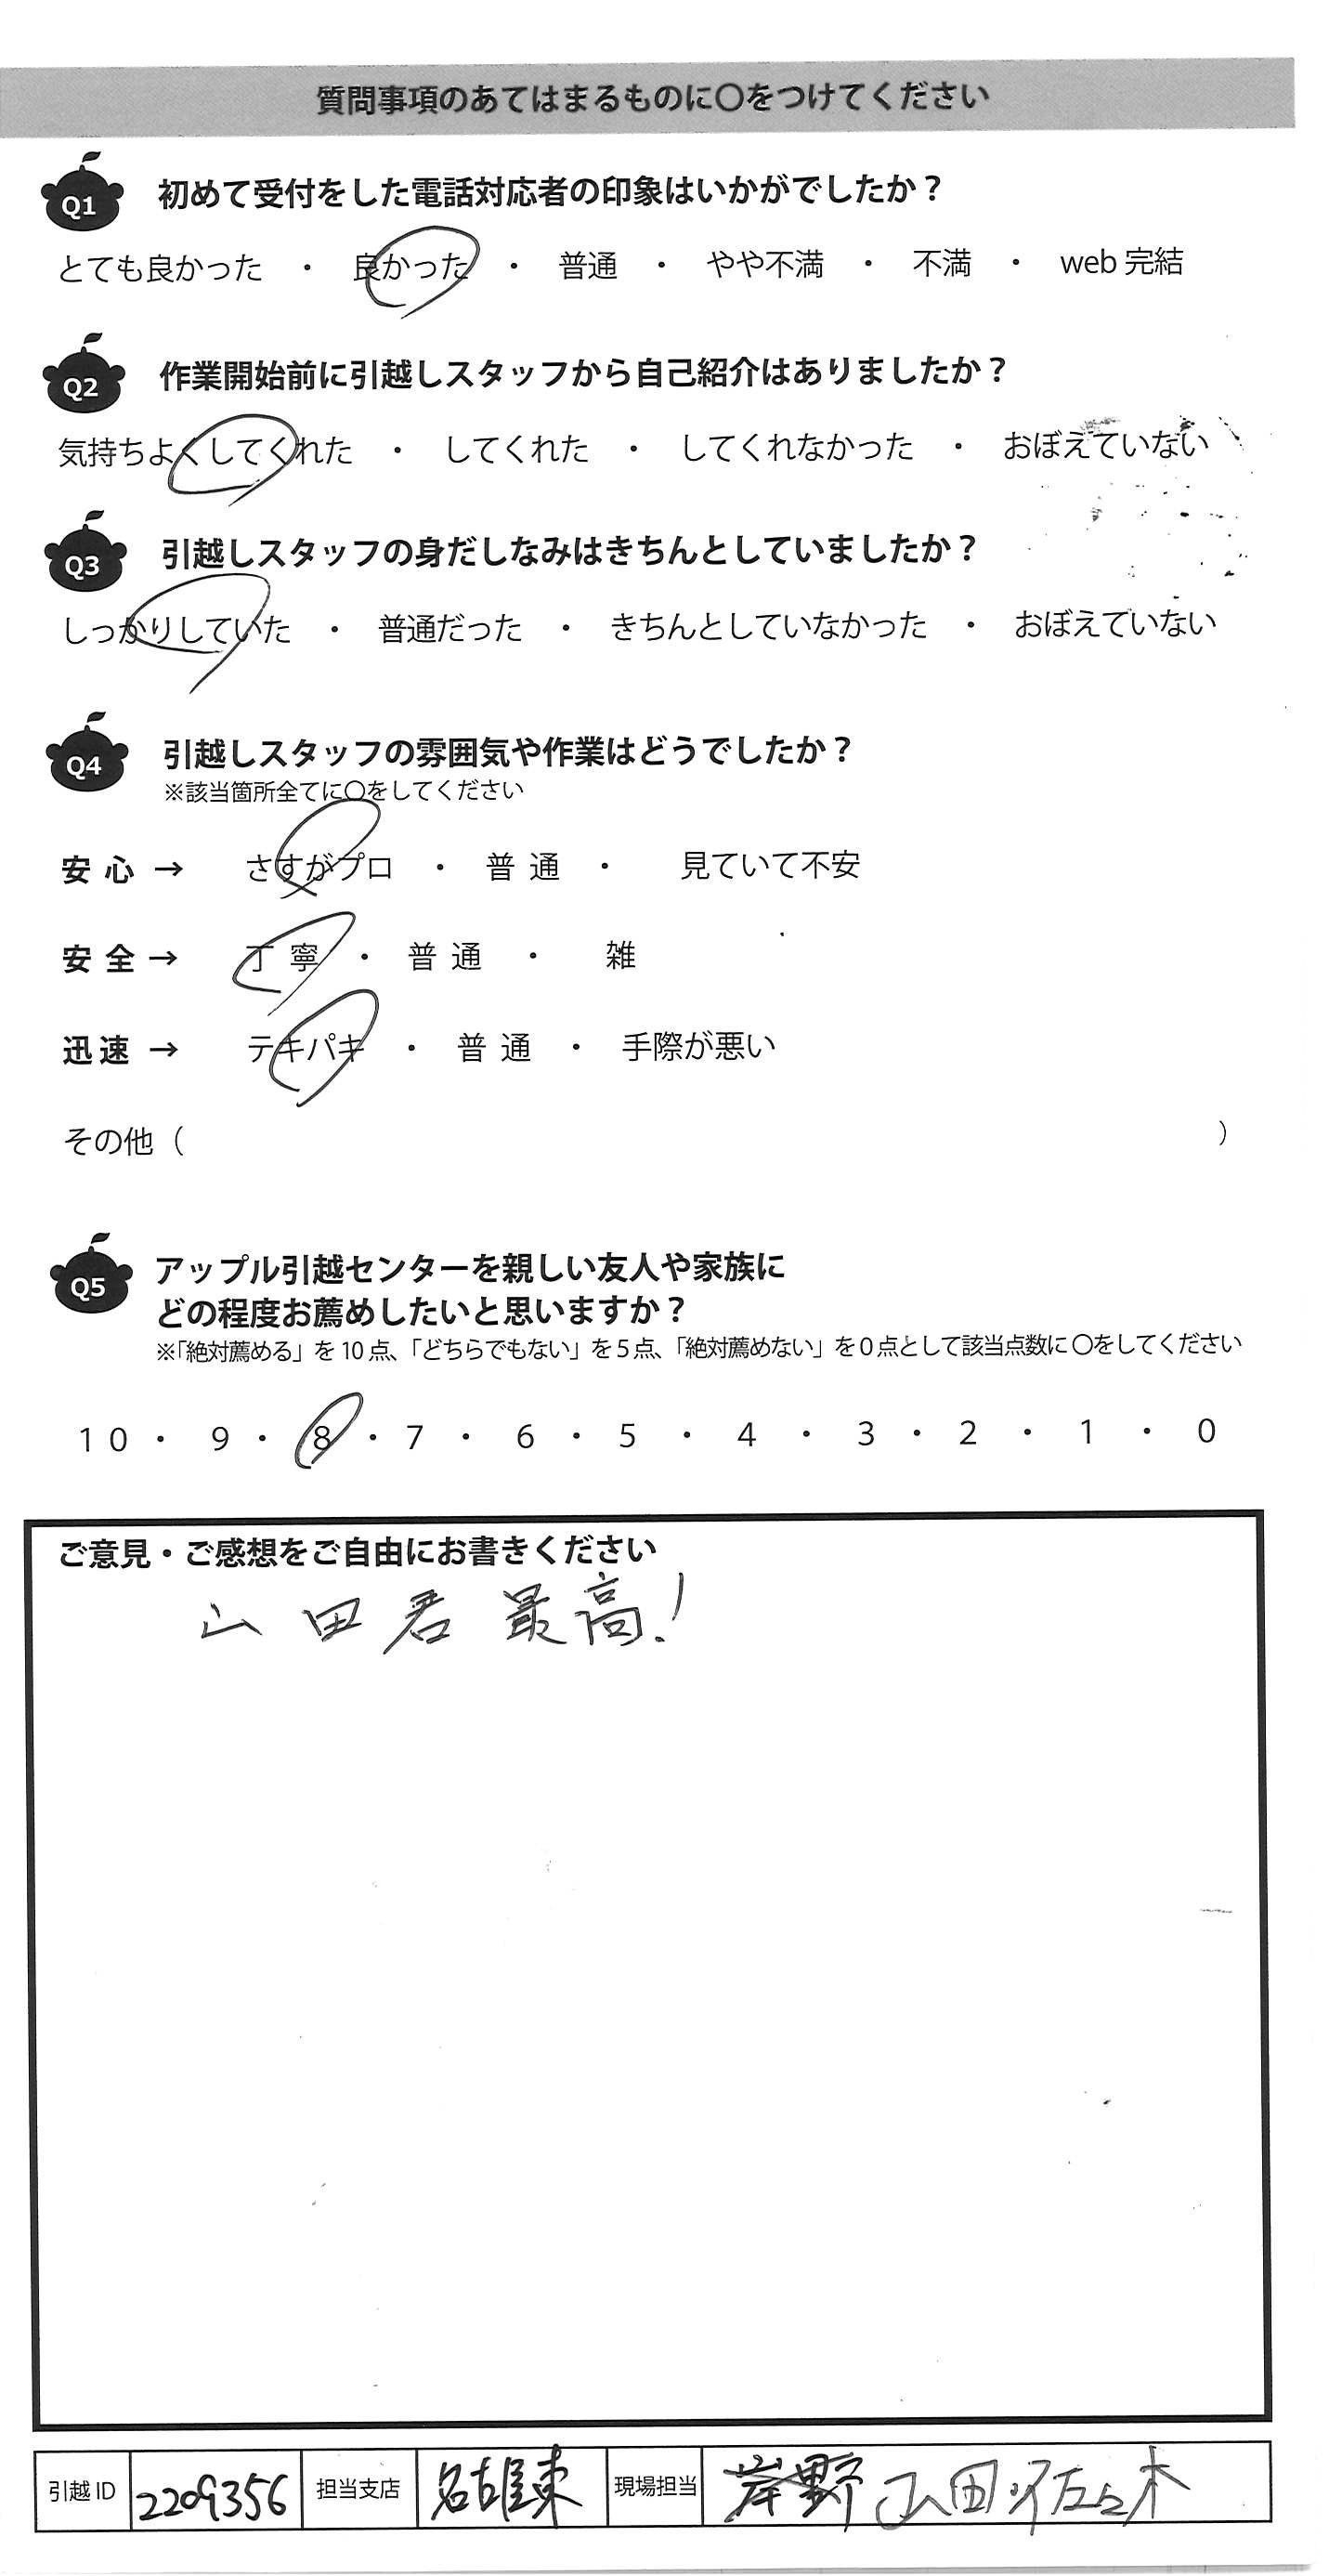 質問事項のあてはまるものに〇をつけてください
Q1 初めて受付をした電話対応者の印象はいかがでしたか？
とても良かった ・ 良かった ・ 普通 ・ やや不満 ・ 不満 ・ web 完結
Q2 作業開始前に引越しスタッフから自己紹介はありましたか？
気持ちよくしてくれた ・ してくれた ・ してくれなかった ・ おぼえていない
Q3 引越しスタッフの身だしなみはきちんとしていましたか？
しっかりしていた ・ 普通だった ・ きちんとしていなかった ・ おぼえていない
Q4 引越しスタッフの雰囲気や作業はどうでしたか？
※該当箇所全てに〇をしてください
安心 → さすがプロ ・ 普通 ・ 見ていて不安
安全 → 丁寧 ・ 普通 ・ 雑
迅速 → テキパキ ・ 普通 ・ 手際が悪い
その他（ ）
Q5 アップル引越センターを親しい友人や家族に
どの程度お薦めしたいと思いますか？
※「絶対薦める」を 10 点、「どちらでもない」を 5 点、「絶対薦めない」を 0 点として該当点数に 〇をしてください
10 ・ 9 ・ 8 ・ 7 ・ 6 ・ 5 ・ 4 ・ 3 ・ 2 ・ 1 ・ 0
ご意見・ご感想をご自由にお書きください
山田君 最高！
引越 ID 2209356 担当支店 名古屋東 現場担当 岸野 山田 佐々木